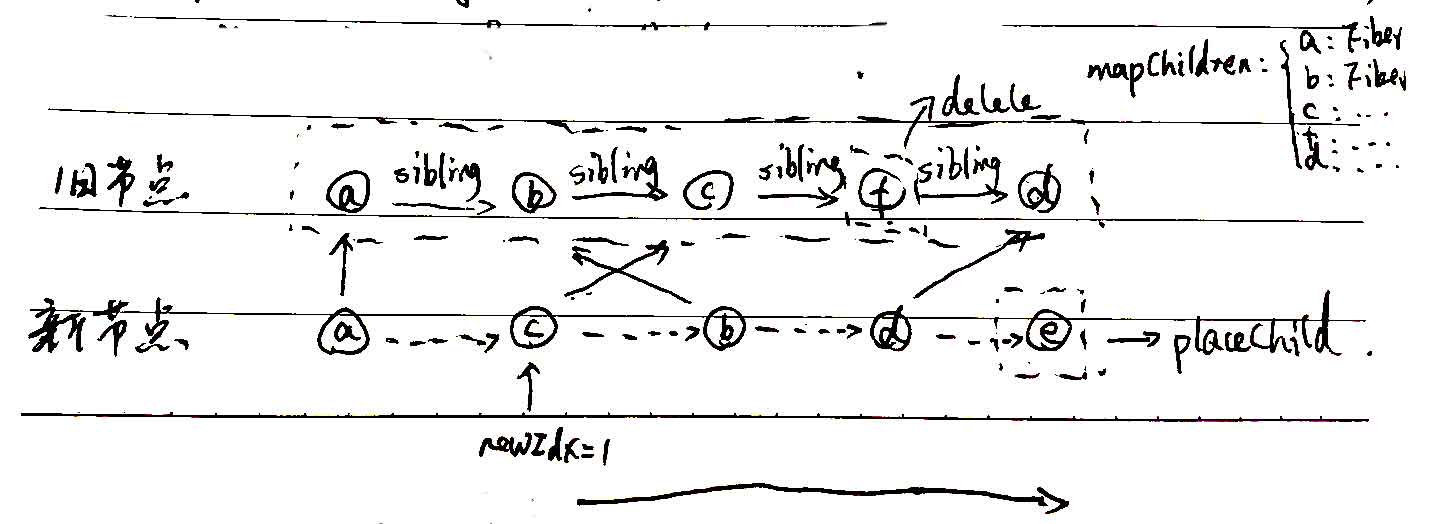 mapChildren: { a: Fiber
b: Fiber
c: ...
f: ...
d: ...
delete
旧节点 a sibling b sibling c sibling f sibling d
新节点 a c b d e → placeChild.
newIdx=1